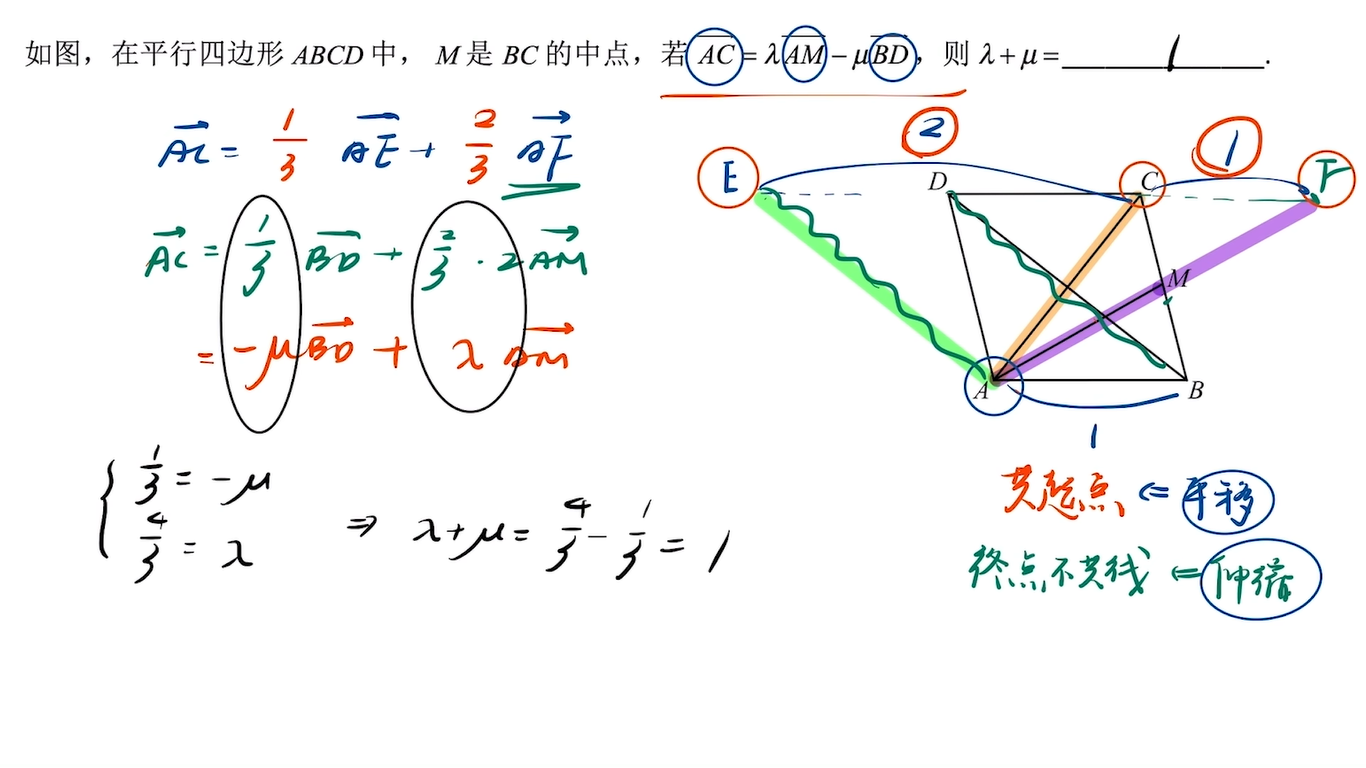 如图，在平行四边形 ABCD 中， M 是 BC 的中点，若 AC = λAM − μBD，则 λ + μ = 1 .
AC = 1/3 AE + 2/3 AF
AC = 1/3 BD + 2/3 · 2AM
= -μBD + λAM
{ 1/3 = -μ
4/3 = λ
⇒ λ+μ = 4/3 - 1/3 = 1
2
1
E
D
C
F
M
A
B
1
共起点 ⇐ 平移
终点不共线 ⇐ 伸缩